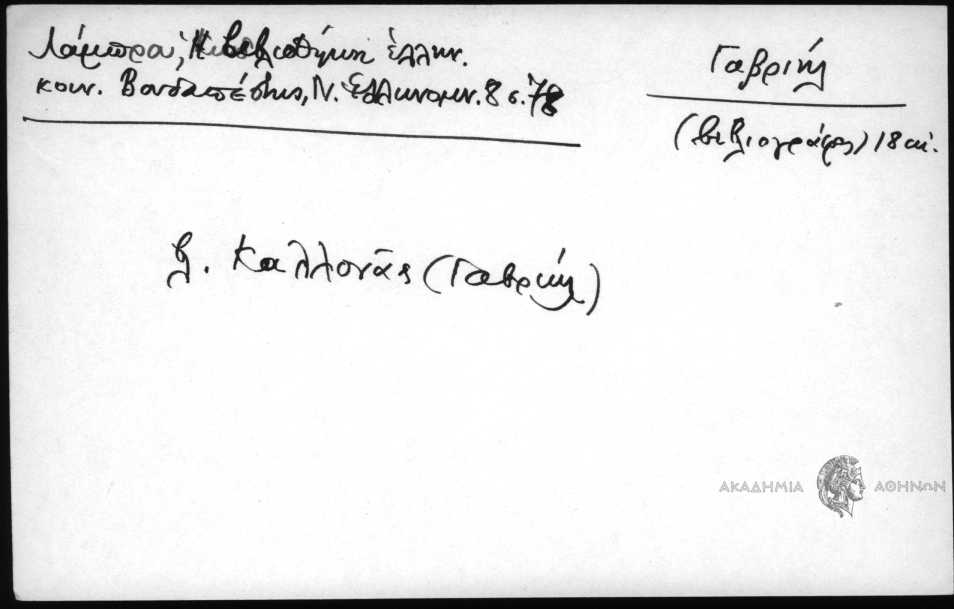 Λάμπρου, Η βιβλιοθήκη ἑλλην.
κοιν. Βουδαπέστης, Ν. Ἑλληνομν. 8 σ. 78
Γαβριήλ
(βιβλιογράφος) 18 αἰ.
β. Καλλονᾶς (Γαβριήλ)
ΑΚΑΔΗΜΙΑ ΑΘΗΝΩΝ